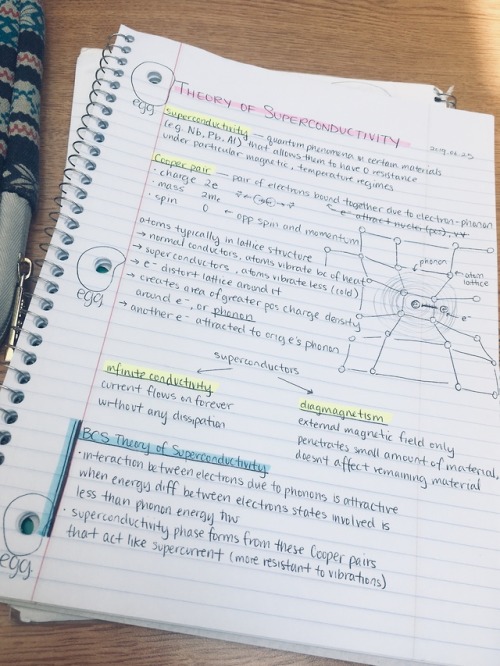 THEORY OF SUPERCONDUCTIVITY
egg
Superconductivity — quantum phenomena in certain materials
(e.g. Nb, Pb, Al) that allows them to have 0 resistance
under particular magnetic, temperature regimes
Cooper pair — pair of electrons bound together due to electron-phonon
· charge 2e
attract nuclear (pos),
· mass 2me
· spin 0 ← opp spin and momentum
atoms typically in lattice structure
→ normal conductors, atoms vibrate bc of heat
→ superconductors, atoms vibrate less (cold)
→ e- distort lattice around it
→ creates area of greater pos charge density
around e-, or phonon
→ another e- attracted to orig e's phonon
phonon
atom
lattice
e-
egg
superconductors
infinite conductivity
current flows on forever
without any dissipation
diagmagnetism
external magnetic field only
penetrates small amount of material,
doesnt affect remaining material
BCS Theory of Superconductivity
· interaction between electrons due to phonons is attractive
when energy diff between electrons states involved is
less than phonon energy ħw
· superconductivity phase forms from these Cooper pairs
that act like supercurrent (more resistant to vibrations)
egg